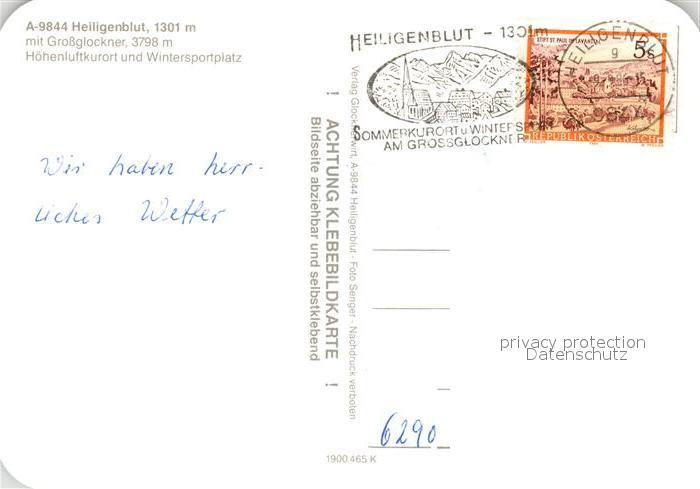 A-9844 Heiligenblut, 1301 m
mit Großglockner, 3798 m
Höhenluftkurort und Wintersportplatz
Wir haben herr-
liches Wetter
! ACHTUNG KLEBEBILDKARTE !
Bildseite abziehbar und selbstklebend
Verlag Glocknerwirt, A-9844 Heiligenblut - Foto Senger - Nachdruck verboten
1900.465 K
HEILIGENBLUT - 1301m
SOMMERKURORT u. WINTERS
AM GROSSGLOCKNER
STIFT ST. PAUL IM LAVANTTAL
5s
REPUBLIK ÖSTERREICH
HEILIGENBLUT
9
privacy protection
Datenschutz
6290